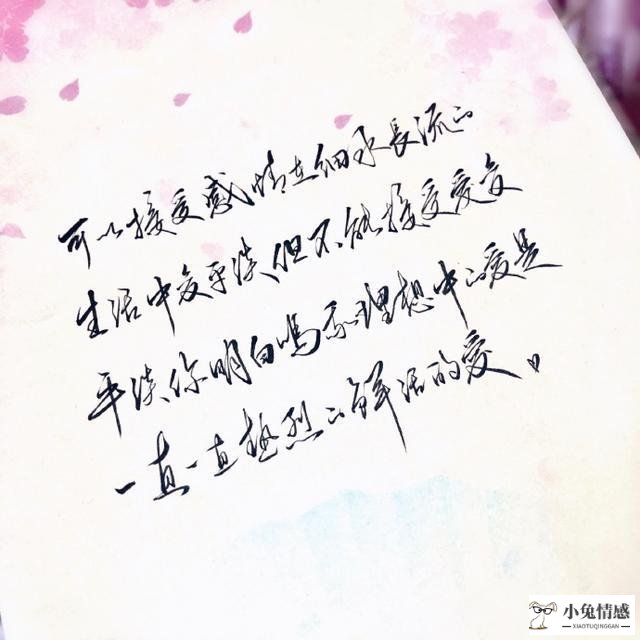 可以接受感情在细水長流的
生活中变平淡、但不能接受爱变
平淡、你明白吗、我理想中的爱是
一直一直热烈的鲜活的爱。
小兔情感
XIAOTUQINGGAN